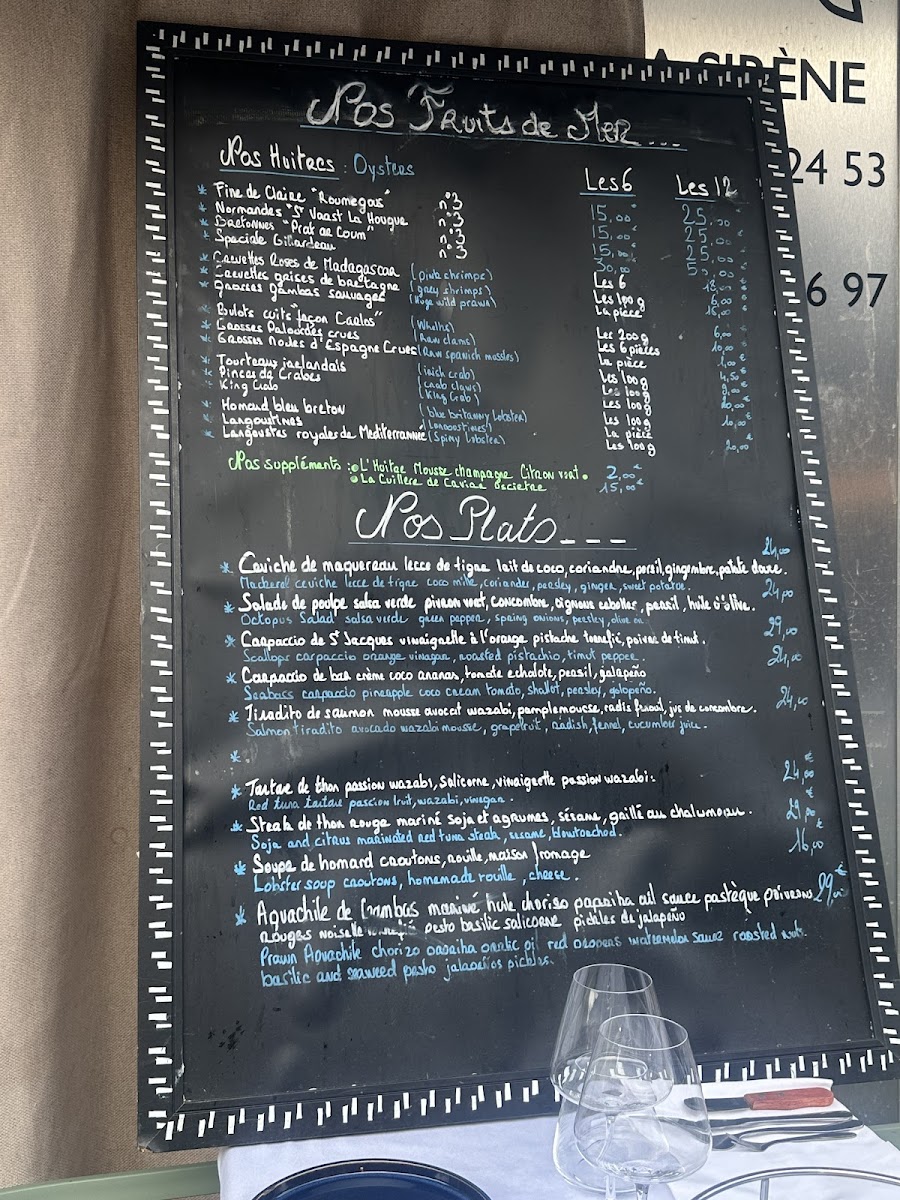 SIRÈNE
24 53
6 97
Nos Fruits de Mer...
Nos Huitres : Oysters Les 6 Les 12
* Fine de Claire "Roumegous" n°3 15,00€ 25,00€
* Normandes "St Vaast La Hougue n°3 15,00€ 25,00€
* Bretonnes "Prat ar Coum" n°3 15,00€ 25,00€
* Speciale Gillardeau n°3 30,00€
* Crevettes Roses de Madagascar (pink shrimps) Les 6
* Crevettes grises de bretagne (grey shrimps) Les 100g
* Grosses gambas sauvages (Huge wild prawn) La pièce
Bulots cuits façon Carlos" (Whelks) Les 200g
Grosses Palourdes crues (Raw clams) Les 6 pièces
Grosses Moules d'Espagne Crues (Raw spanich mossles) La pièce
Tourteaux irelandais (irish crab) Les 100g
Pinces de Crabes (crab claws) Les 100g
King Crab (King Crab) Les 100g
Homard bleu breton (blue britanny Lobster) Les 100g
Langoustines (Langoustines) La pièce
* Langoustes royales de Mediterrannee (Spiny Lobster) Les 100g 20,00€
Nos suppléments : L'Huitre Mousse champagne Citron vert. 2,00€
La Cuillère de Caviar oscietre 15,00€
Nos Plats___
* Ceviche de maquereau lecce de tigre lait de coco, coriandre, persil, gingembre, patate douce. 24,00
Mackerel ceviche lecce de tigre coco milk, coriander, parsley, ginger, sweet potatoe.
* Salade de poulpe salsa verde pivron vert, concombre, oignons cebottes, persil, huile d'olive. 24,00
Octopus Salad salsa verde green pepper, spring onions, parsley, olive oil
* Carpaccio de St Jacques vinaigrette à l'orange pistache torréfié, poivre de timut. 29,00
Scallops carpaccio orange vinegar, roasted pistachio, timut pepper.
* Carpaccio de bar crème coco ananas, tomate echalote, persil, jalapeño 24,00
Seabass carpaccio pineapple coco cream tomato, shallot, parsley, galopeño.
* Tiradito de saumon mousse avocat wazabi, pamplemousse, radis fenouil, jus de concombre. 24,00
Salmon tiradito avocado wazabi mousse, grapefruit, radish, fennel, cucumber juice.
*
* Tartare de thon passion wazabi, Salicorne, vinaigrette passion wazabi. 24,00€
Red tuna tartare passion fruit, wazabi, vinegar.
* Steak de thon rouge mariné soja et agrumes, sésame, grillé au chalumeau. 29,00
Soja and citrus marinated red tuna steak, sesame, blowtorched.
* Soupe de homard croutons, rouille, maison fromage 16,00€
Lobster soup croutons, homemade rouille, cheese.
* Aguachile de Gambas mariné huile chorizo paprika ail sauce pastèque poivrons 29,00€
rouges noisette pesto basilic salicorne pickles de jalapeño
Prawn Aguachile chorizo paprika garlic oil red peppers watermelon sauce roasted nuts
basilic and seaweed pesto jalapeños pickles.